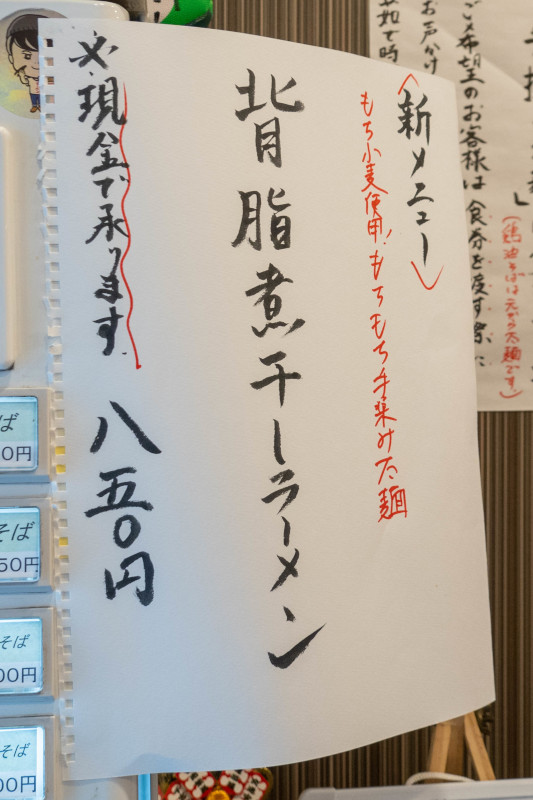 〈新メニュー〉
もち小麦使用!もちもち手揉み太麺
背脂煮干しラーメン
※現金で承ります。
八五〇円
ご希望のお客様は食券を渡す際に
お声がけ
(鶏油そばは元から太麺です)
ば
0円
そば
50円
そば
00円
そば
00円